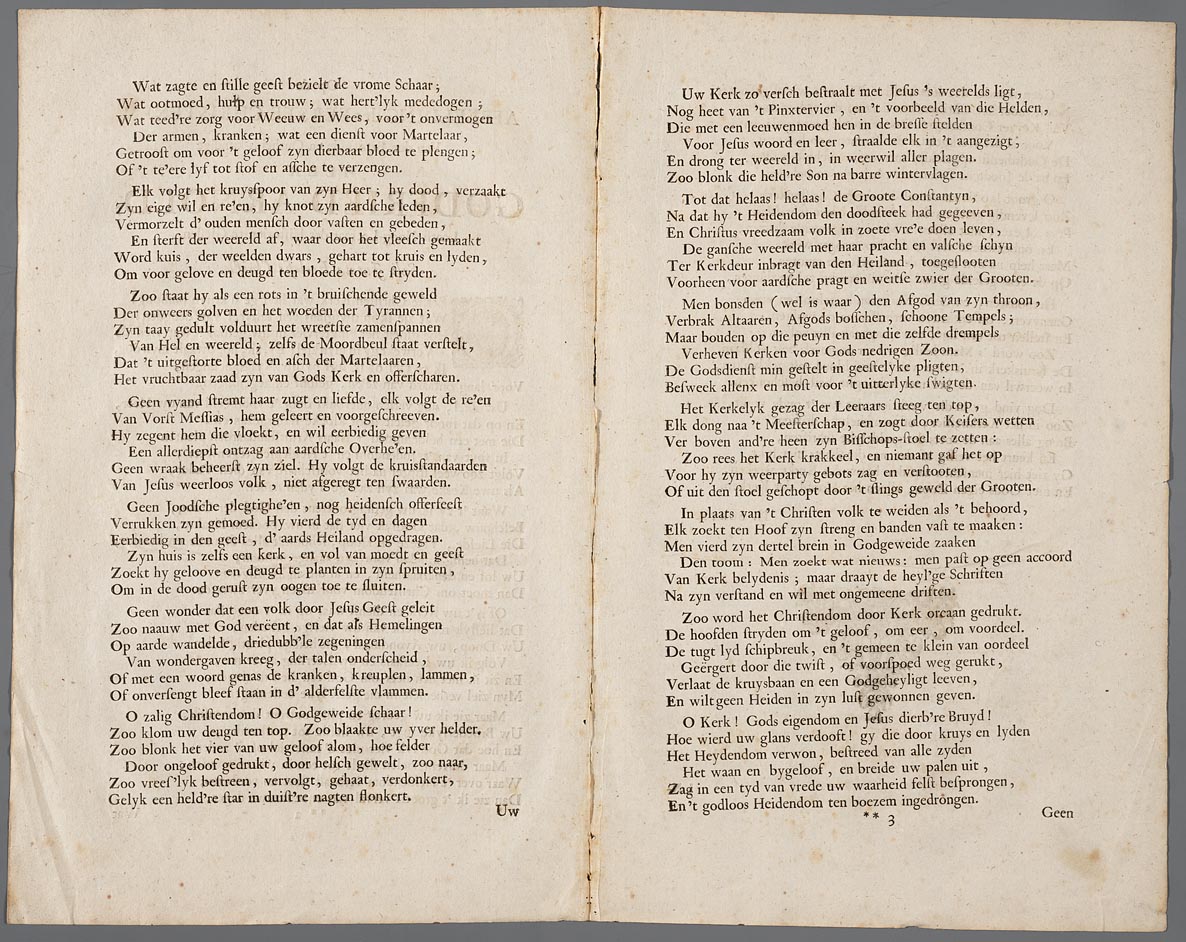 Wat zagte en ſtille geeſt bezielt de vrome Schaar;
Wat ootmoed, hulp en trouw; wat hert'lyk mededogen;
Wat teed're zorg voor Weeuw en Wees, voor't onvermogen
Der armen, kranken; wat een dienſt voor Martelaar,
Getrooſt om voor 't geloof zyn dierbaar bloed te plengen;
Of 't te'ere lyf tot ſtof en aſſche te verzengen.
Elk volgt het kruysſpoor van zyn Heer; hy dood, verzaakt
Zyn eige wil en re'en, hy knot zyn aardſche leden,
Vermorzelt d' ouden menſch door vaſten en gebeden,
En ſterft der weereld af, waar door het vleeſch gemaakt
Word kuis, der weelden dwars, gehart tot kruis en lyden,
Om voor gelove en deugd ten bloede toe te ſtryden.
Zoo ſtaat hy als een rots in 't bruiſchende geweld
Der onweers golven en het woeden der Tyrannen;
Zyn taay gedult volduurt het wreetſte zamenſpannen
Van Hel en weereld; zelfs de Moordbeul ſtaat verſtelt,
Dat 't uitgeſtorte bloed en aſch der Martelaaren,
Het vruchtbaar zaad zyn van Gods Kerk en offerſcharen.
Geen vyand ſtremt haar zugt en liefde, elk volgt de re'en
Van Vorſt Meſſias, hem geleert en voorgeſchreeven.
Hy zegent hem die vloekt, en wil eerbiedig geven
Een allerdiepſt ontzag aan aardſche Overhe'en.
Geen wraak beheerſt zyn ziel. Hy volgt de kruisſtandaarden
Van Jeſus weerloos volk, niet afgeregt ten ſwaarden.
Geen Joodſche plegtighe'en, nog heidenſch offerfeeſt
Verrukken zyn gemoed. Hy vierd de tyd en dagen
Eerbiedig in den geeſt, d' aards Heiland opgedragen.
Zyn huis is zelfs een kerk, en vol van moedt en geeſt
Zoekt hy geloove en deugd te planten in zyn ſpruiten,
Om in de dood geruſt zyn oogen toe te ſluiten.
Geen wonder dat een volk door Jeſus Geeſt geleit
Zoo naauw met God verëent, en dat als Hemelingen
Op aarde wandelde, driedubb'le zegeningen
Van wondergaven kreeg, der talen onderſcheid,
Of met een woord genas de kranken, kreuplen, lammen,
Of onverſengt bleef ſtaan in d' alderfelſte vlammen.
O zalig Chriſtendom! O Godgeweide ſchaar!
Zoo klom uw deugd ten top. Zoo blaakte uw yver helder.
Zoo blonk het vier van uw geloof alom, hoe felder
Door ongeloof gedrukt, door helſch gewelt, zoo naar,
Zoo vreeſ'lyk beſtreen, vervolgt, gehaat, verdonkert,
Gelyk een held're ſtar in duiſt're nagten flonkert.
Uw
Uw Kerk zo verſch beſtraalt met Jeſus 's weerelds ligt,
Nog heet van 't Pinxtervier, en 't voorbeeld van die Helden,
Die met een leeuwenmoed hen in de breſſe ſtelden
Voor Jeſus woord en leer, ſtraalde elk in 't aangezigt;
En drong ter weereld in, in weerwil aller plagen.
Zoo blonk die held're Son na barre wintervlagen.
Tot dat helaas! helaas! de Groote Conſtantyn,
Na dat hy 't Heidendom den doodſteek had gegeeven,
En Chriſtus vreedzaam volk in zoete vre'e doen leven,
De ganſche weereld met haar pracht en valſche ſchyn
Ter Kerkdeur inbragt van den Heiland, toegeſlooten
Voorheen voor aardſche pragt en weitſe zwier der Grooten.
Men bonsden (wel is waar) den Afgod van zyn throon,
Verbrak Altaaren, Afgods boſſchen, ſchoone Tempels;
Maar bouden op die peuyn en met die zelfde drempels
Verheven Kerken voor Gods nedrigen Zoon.
De Godsdienſt min geſtelt in geeſtelyke pligten,
Beſweek allenx en moſt voor 't uitterlyke ſwigten.
Het Kerkelyk gezag der Leeraars ſteeg ten top,
Elk dong naa 't Meeſterſchap, en zogt door Keiſers wetten
Ver boven and're heen zyn Biſſchops-ſtoel te zetten:
Zoo rees het Kerk krakkeel, en niemant gaf het op
Voor hy zyn weerparty gebots zag en verſtooten,
Of uit den ſtoel geſchopt door 't ſlings geweld der Grooten.
In plaats van 't Chriſten volk te weiden als 't behoord,
Elk zoekt ten Hoof zyn ſtreng en banden vaſt te maaken:
Men vierd zyn dertel brein in Godgeweide zaaken
Den toom: Men zoekt wat nieuws: men paſt op geen accoord
Van Kerk belydenis; maar draayt de heyl'ge Schriften
Na zyn verſtand en wil met ongemeene driften.
Zoo word het Chriſtendom door Kerk orcaan gedrukt.
De hoofden ſtryden om 't geloof, om eer, om voordeel.
De tugt lyd ſchipbreuk, en 't gemeen te klein van oordeel
Geërgert door die twiſt, of voorſpoed weg gerukt,
Verlaat de kruysbaan en een Godgeheyligt leeven,
En wilt geen Heiden in zyn luſt gewonnen geven.
O Kerk! Gods eigendom en Jeſus dierb're Bruyd!
Hoe wierd uw glans verdooft! gy die door kruys en lyden
Het Heydendom verwon, beſtreed van alle zyden
Het waan en bygeloof, en breide uw palen uit,
Zag in een tyd van vrede uw waarheid felſt beſprongen,
En 't godloos Heidendom ten boezem ingedrongen.
** 3
Geen